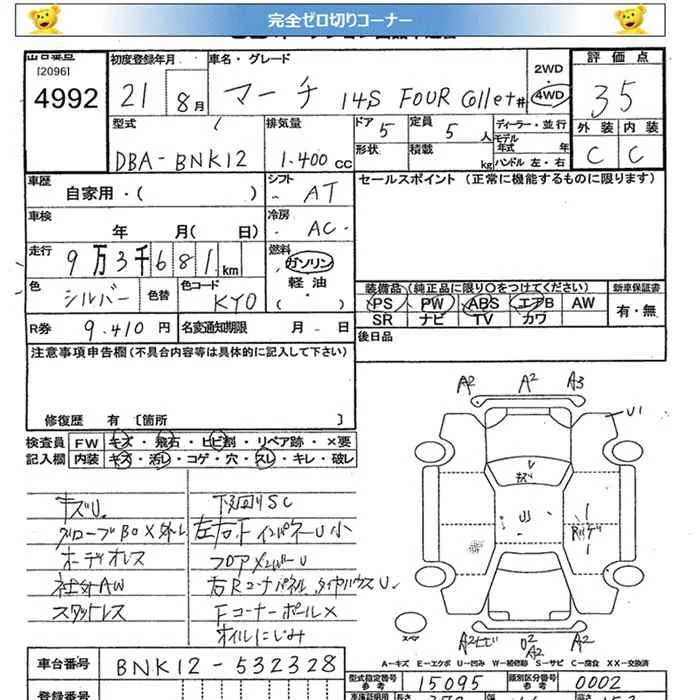 完全ゼロ切りコーナー
出品番号 初度登録年月 車名・グレード 2WD 評価点
[2096]
4992 21 8月 マーチ 14S FOUR Collet 4WD 35
型式 排気量 ドア 5 定員 5 人 ディーラー・並行 外装 内装
モデル年式 年
DBA-BNK12 1.400 cc 形状 積載 kg ハンドル 左・右 C C
車歴 シフト セールスポイント (正常に機能するものに限ります)
自家用・( ) AT
車検 冷房
年 月( 日) AC
走行 燃料
9万3千681km ガソリン
軽油
( )
色 色替 色コード 装備品(純正品に限り〇をつけてください) 新車保証書
シルバー KY0 PS PW ABS エアB AW 有・無
SR ナビ TV カワ
R券 9.410 円 名変通知期限 月 日 後日品
注意事項申告欄(不具合内容等は具体的に記入して下さい)
修復歴 有 [箇所 ]
検査員 FW キズ・飛石・ヒビ割・リペア跡・×要
記入欄 内装 キズ・汚レ・コゲ・穴・スレ・キレ・破レ
A2 A2 A3
U1
V
キズ
キズU 下回りSC
グローブBOX外レ 左右Fインパネ―U小
オーディオレス フロアメンバーU
社外AW 右Rコーナパネル、タイヤハウスU
スタットレス FコーナーポールX
オイルにじみ
スペア
A2ヒビ 02 A2
A2
A-キズ E-エクボ U-凹み W-補修跡 S-サビ C-腐食 XX-交換済
車台番号 BNK12-532328
型式指定番号 参考 15095 類別区分番号 参考 0002
登録番号